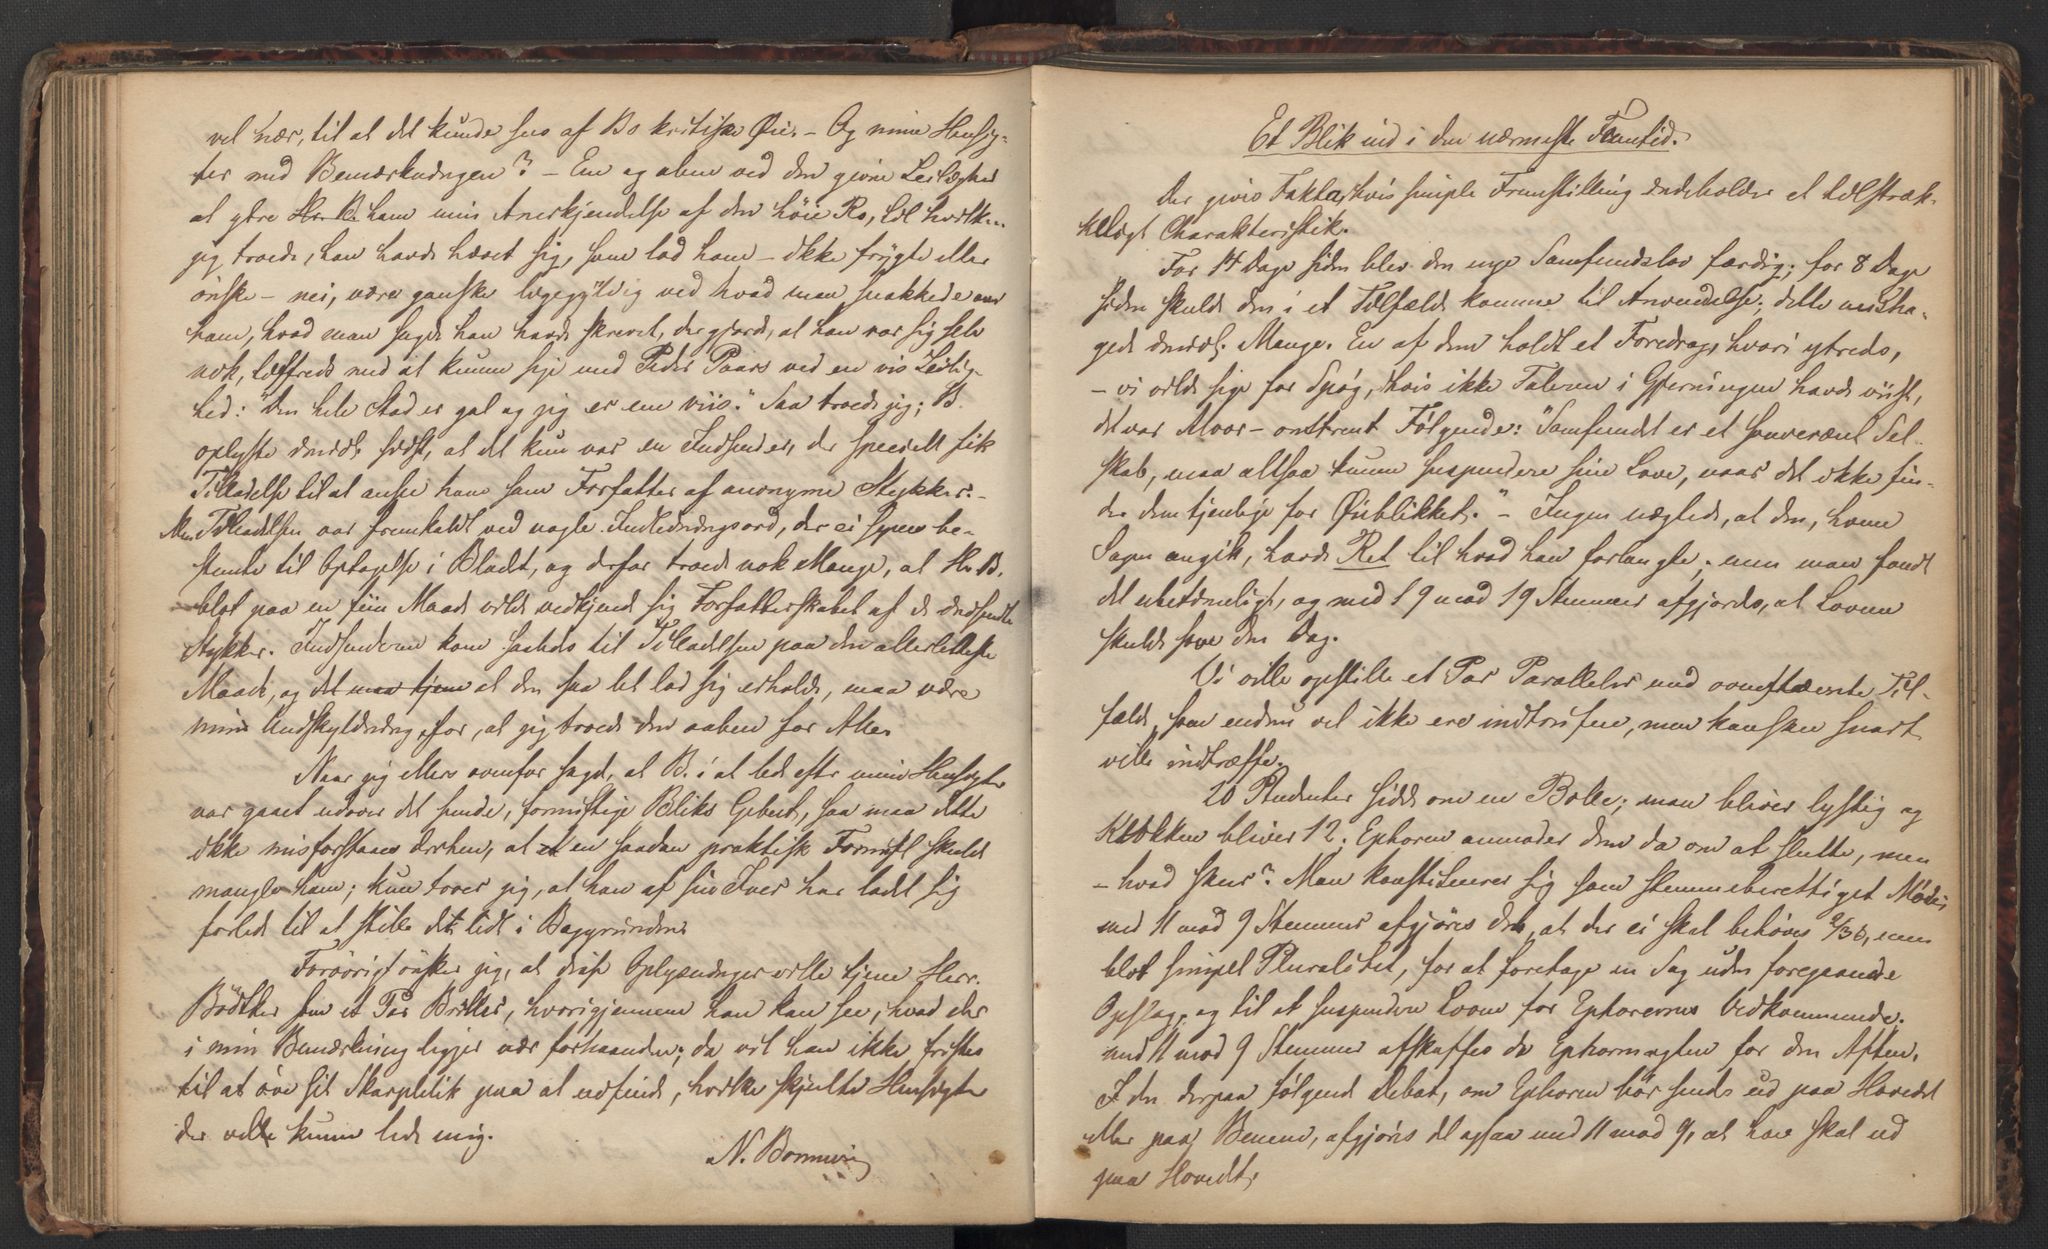 vel nær, til at det kunde sees af Bs kritiske Øie. – Og mine Hensig-
ter med Bemærkningen? – Een og alene ved den givne Leilighed
at yttre Hr. B. ham min Anerkjendelse af den høie Ro, til hvilken
jeg troede, han havde hævet sig, som lod ham – ikke frygte eller
ønske – nei, være ganske ligegyldig ved hvad man snakkede om
ham, hvad man sagde han havde skrevet, der gjorde, at han var sig selv
nok, tilfreds med at kunne sige med Peder Paars ved en vis Leilig-
hed: "Den hele Stad er gal og jeg er ene viis." Saa troede jeg; B.
oplyste imidl. sidst, at det kun var en Indsender, der specielt fik
Tilladelse til at ansee ham som Forfatter af anonyme Stykker. –
Men Tilladelsen var fremkaldt ved nogle Indledningsord, der ei synes be-
stemte til Optagelse i Bladet, og derfor troede nok Mange, at Hr. B.
blot paa en fiin Maade vilde vedkjende sig Forfatterskabet af de indsendte
Stykker. Indsenderen kom saaledes til Tilladelsen paa den allerletteste
Maade, og det maa tjene at den saa let lod sig erholde, maa være
min Undskyldning for, at jeg troede den aaben for Alle.
Naar jeg ellers ovenfor sagde, at B. i at lede efter mine Hensigter
var gaaet udover det sunde, fornuftige Bliks Gebeet, saa maa dette
ikke misforstaaes derhen, at et en saadan praktisk Fornuft skulde
mangle ham; kun troer jeg, at han af sin Iver har ladet sig
forlede til at stille det lidt i Baggrunden.
Forøvrigt ønsker jeg, at disse Oplysninger ville tjene Herr.
Bödtker som et Par Briller, hvorigjennem han kan see, hvad der
i min Bemærkning ligger nær forhaanden; da vil han ikke fristes
til at øve sit Skarpblik paa at udfinde, hvilke skjulte Hensigter
der vilde kunne lede mig.
N. Bonnevie
Et Blik ind i den nærmeste Fremtid.
Der gives Fakta, hvis simple Fremstilling indeholder et tilstræk-
keligt Charakteristik.
For 14 Dage siden blev den nye Samfundslov færdig; for 8 Dage
siden skulde den i et Tilfælde komme til Anvendelse; dette misha-
gede imidl. Mange. En af dem holdt et Foredrag, hvori ytredes,
– vi vilde sige for Spøg, hvis ikke Taleren i Gjerningen havde viist,
det var Alvor – omtrent Følgende: "Samfundet er et souveraint Sel-
skab, maa altsaa kunne suspendere sine Love, naar det ikke fin-
der dem tjenlige for Øieblikket." – Ingen nægtede, at den, hvem
Sagen angik, havde Ret til hvad han forlangte; men man fandt
det ubetimeligt, og med 19 mod 19 Stemmer afgjordes, at Loven
skulde sove den Dag.
Vi ville opstille et Par Paralleler med ovennævnte Til-
fælde, som endnu vel ikke ere indtrufne, men kanskee snart
ville indtræffe.
20 Studenter sidde om en Bolle; man bliver lystig og
Klokken bliver 12. Ephoren anmoder dem da om at slutte, men
– hvad skeer? Man konstituerer sig som stemmeberettiget Møde;
med 11 mod 9 Stemmer afgjøres det, at der ei skal behøves 2/3d, men
blot simpel Pluralitet, for at foretage en Sag uden foregaaende
Opslag, og til at suspendere Loven for Ephorernes Vedkommende;
med 11 mod 9 Stemmer afskaffes da Ephormagten for den Aften.
I den derpaa følgende Debat, om Ephoren bør sendes ud paa Hovedet
eller paa Benene, afgjøres det ogsaa med 11 mod 9, at han skal ud
paa Hovedet.